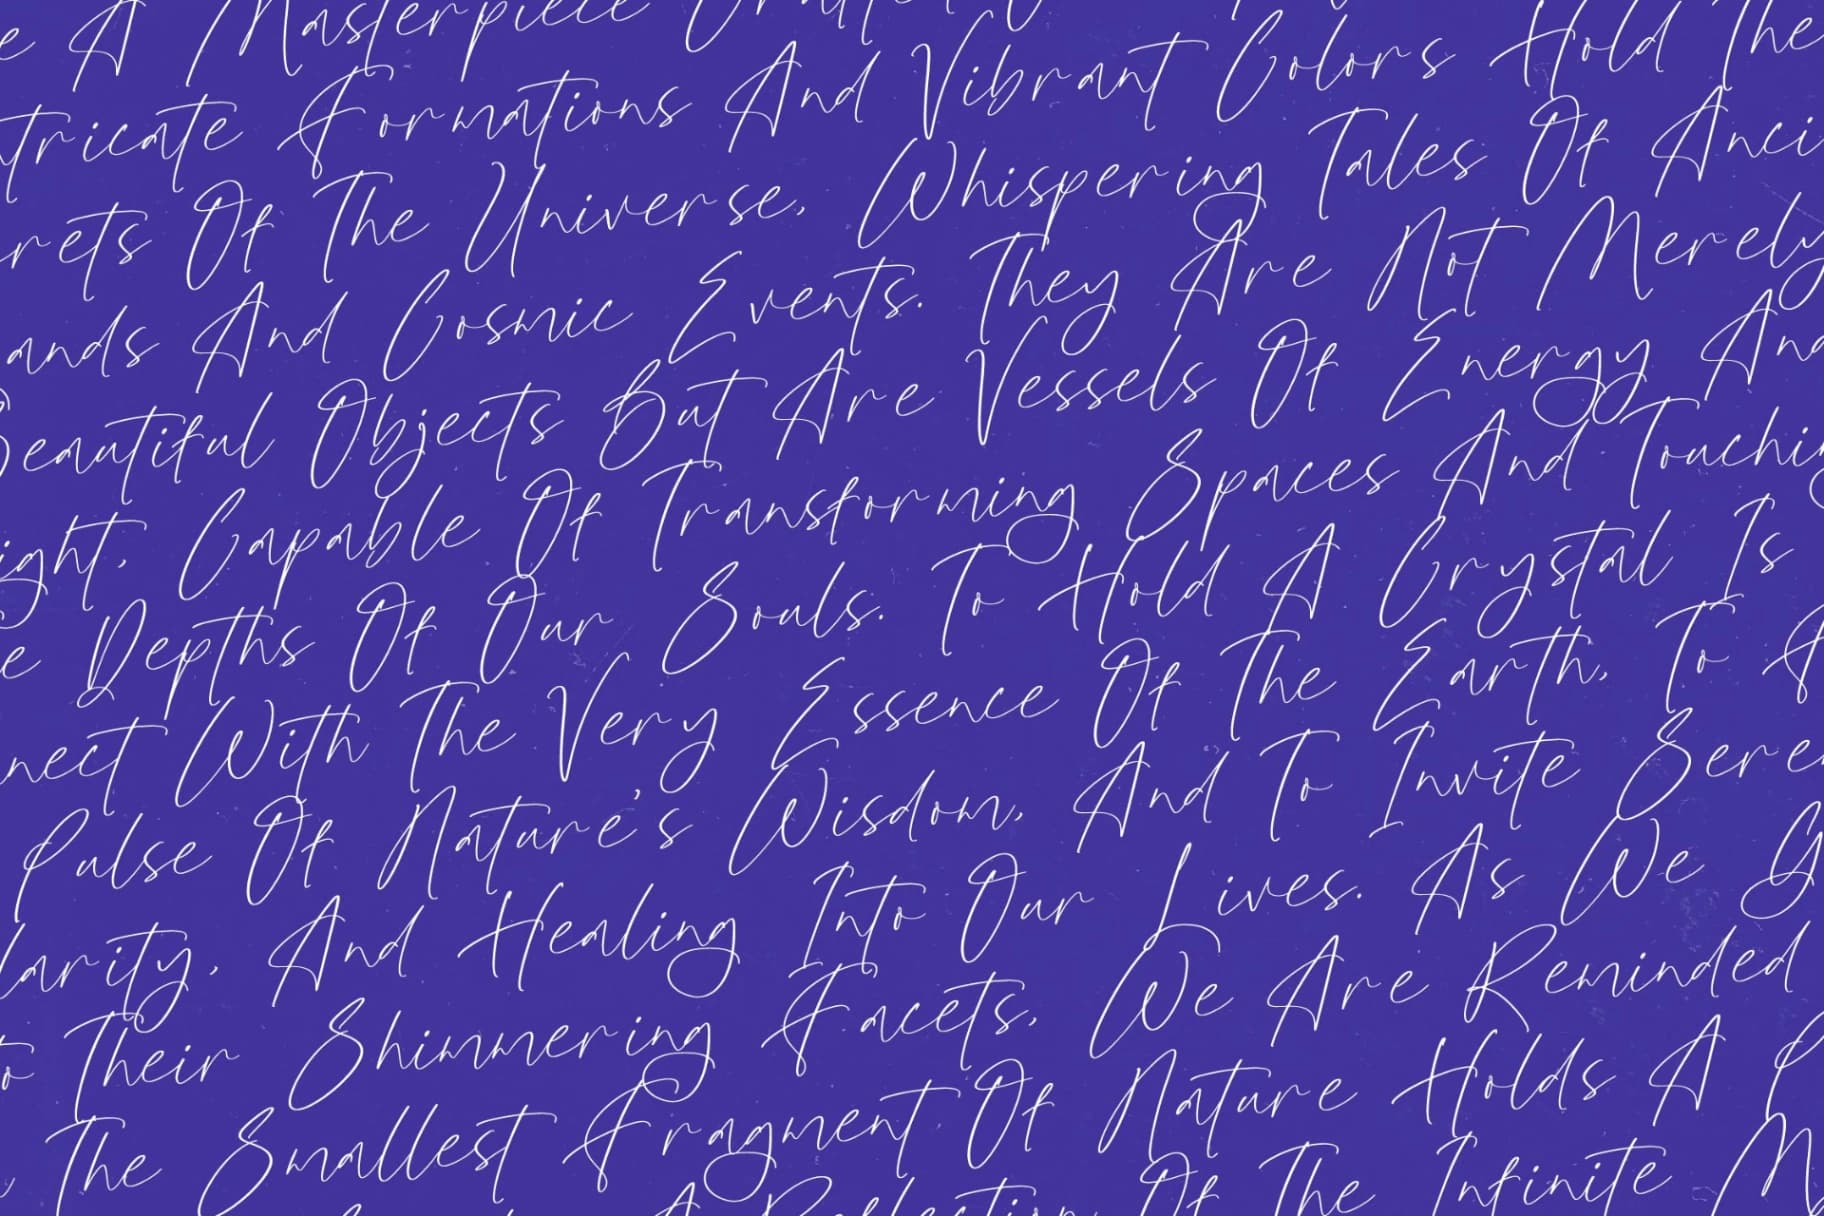 e A Masterpiece
tricate Formations And Vibrant Colors Hold The
rets Of The Universe, Whispering Tales Of Anci
ands And Cosmic Events. They Are Not Merely
Beautiful Objects But Are Vessels Of Energy And
ight, Capable Of Transforming Spaces And Touching
e Depths Of Our Souls. To Hold A Crystal Is
nect With The Very Essence Of The Earth, To
Pulse Of Nature's Wisdom, And To Invite Sere
larity, And Healing Into Our Lives. As We G
to Their Shimmering Facets, We Are Reminded
The Smallest Fragment Of Nature Holds A P
A Reflection Of The Infinite M